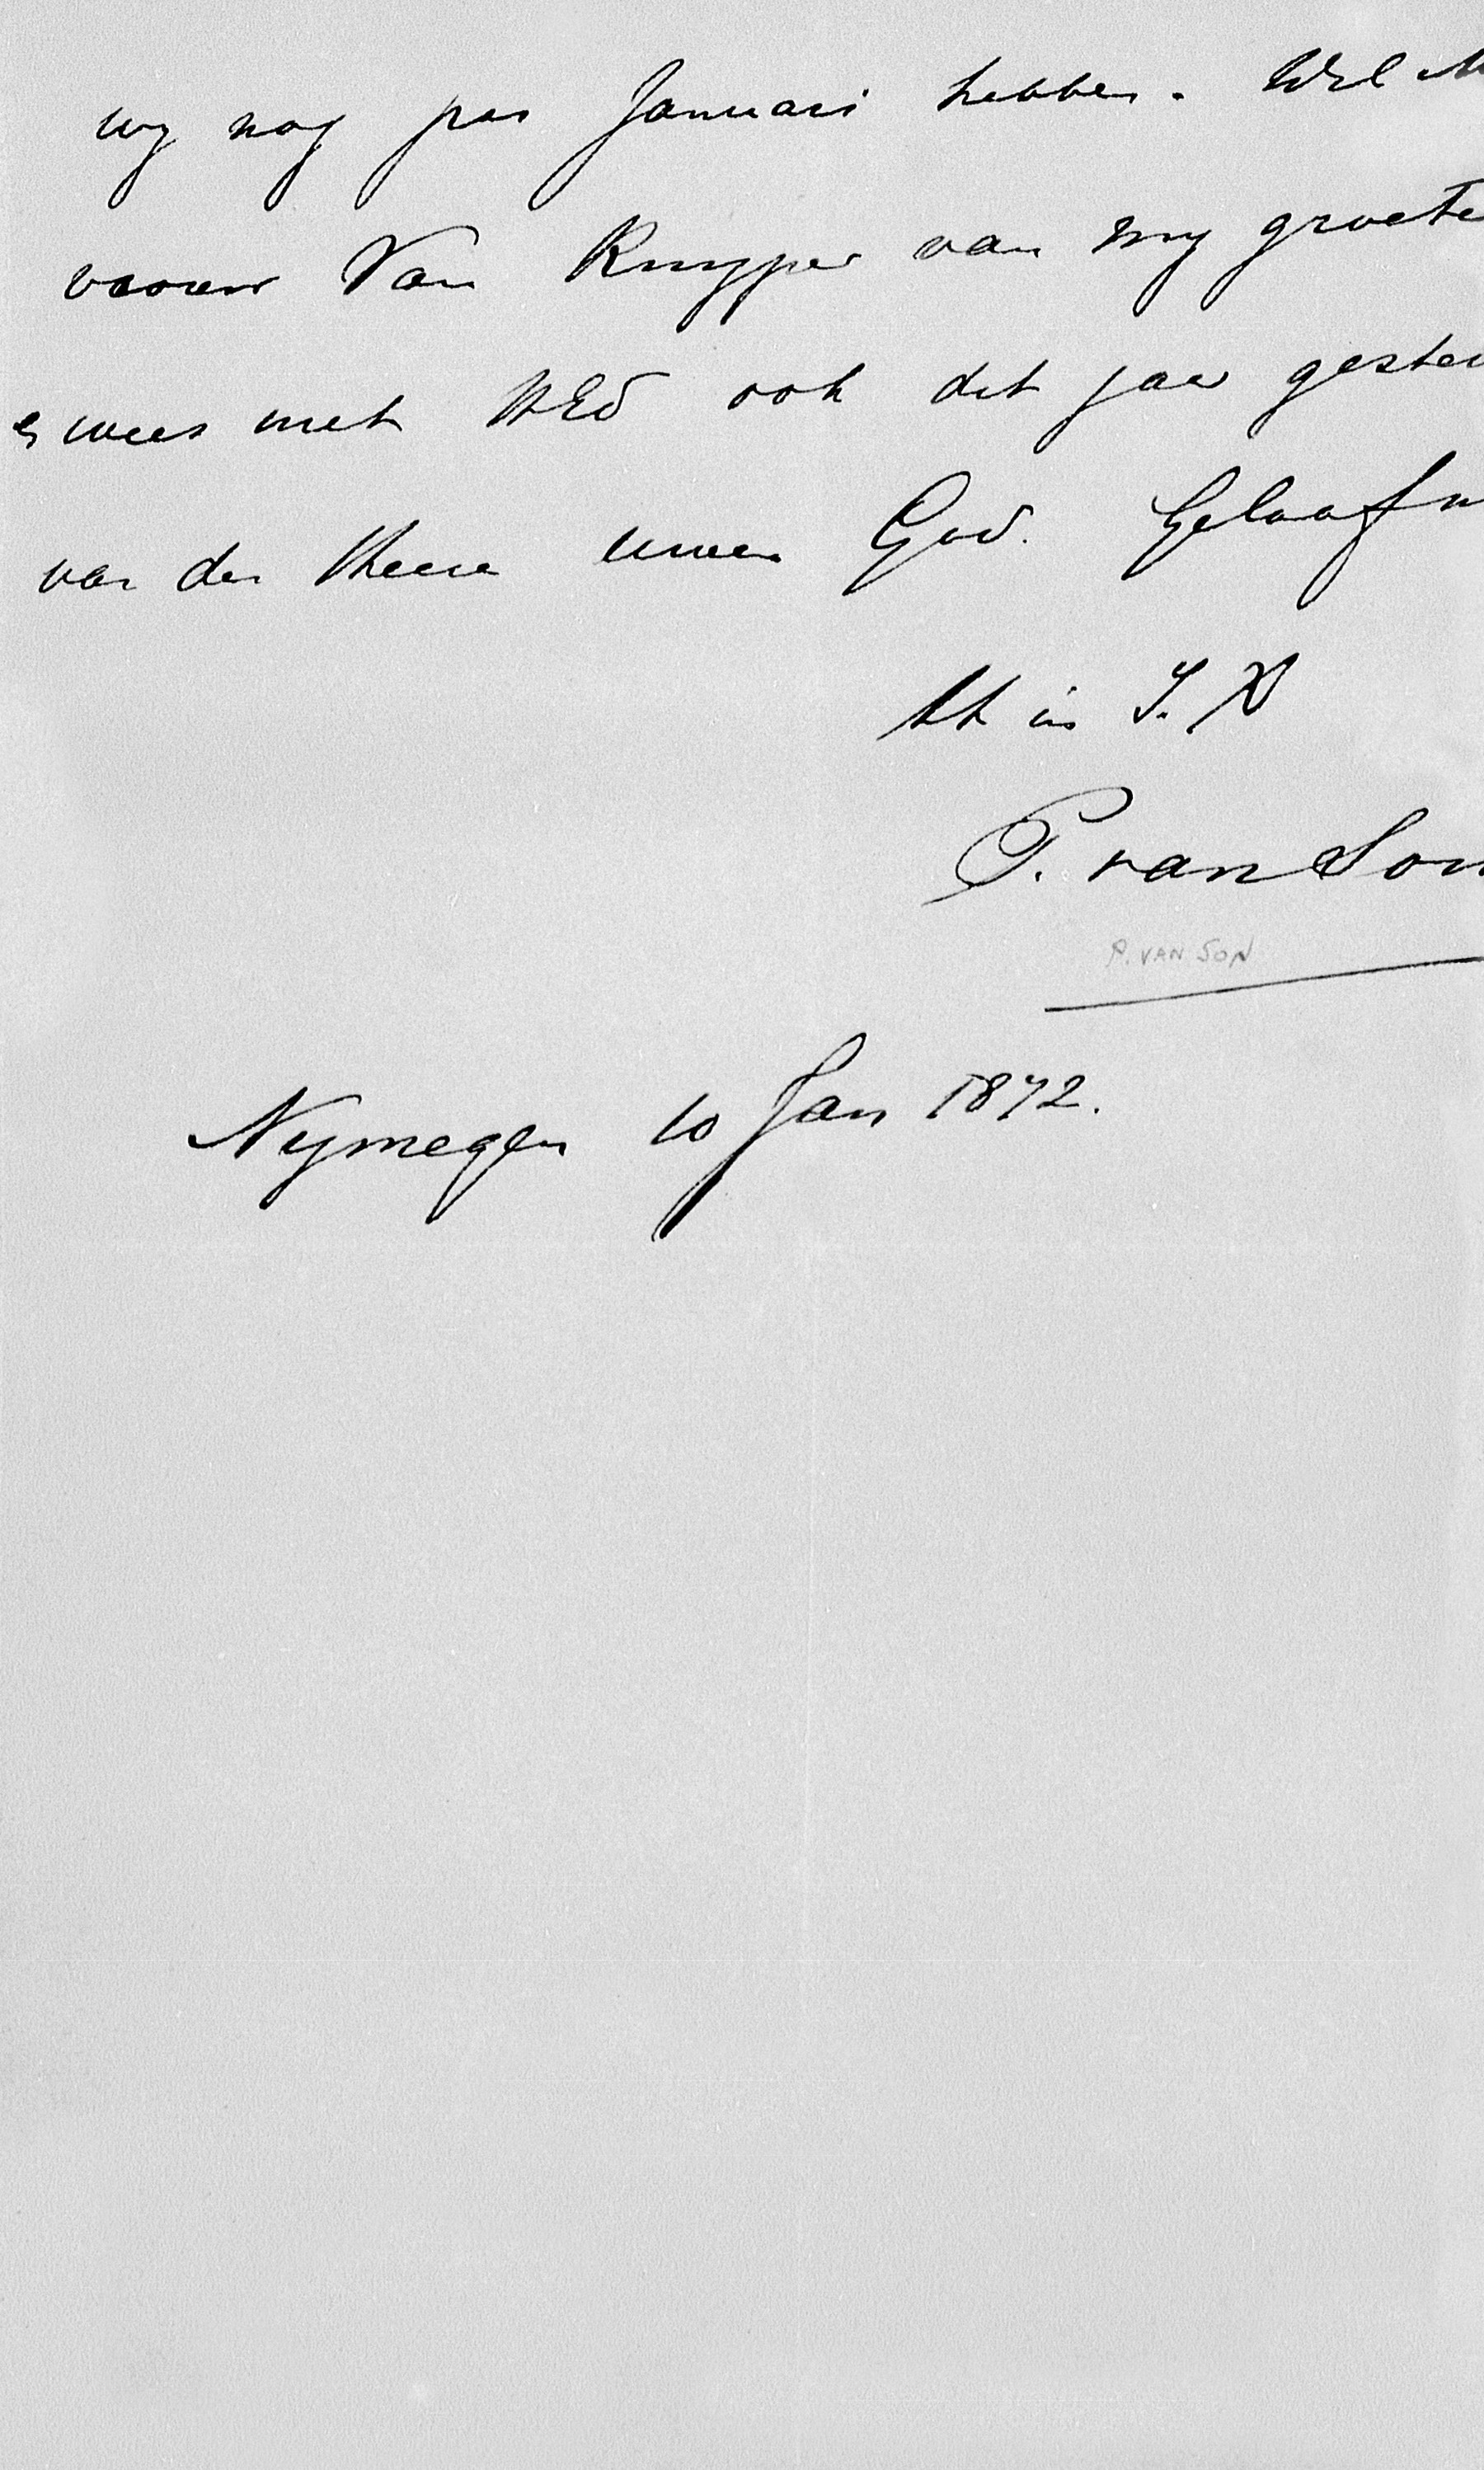 wy nog pas Januari hebben. Wil M
vrouw Van Kuyper van my groete
en wees met UEd ook dit jaar gester
van den Heere uwen God. Geloof m
tt in J. X
P. van Son
P. VAN SON
Nymegen 10 Jan 1872.